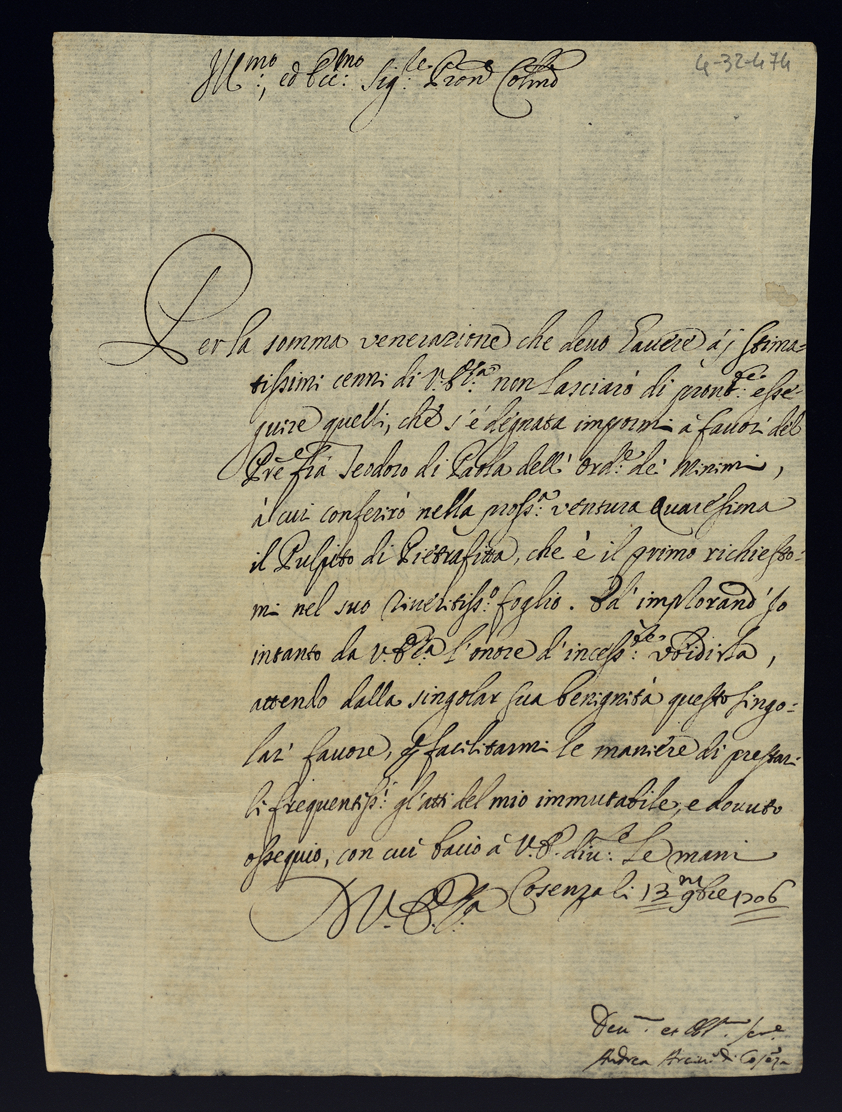 Ill:mo, ed Ecc:mo Sig:re Pron Colmo
4-32-474
Per la somma venerazione che devo havere à i stima-
tissimi cenni di V. Ecc:za non lasciarò di pront:e esse-
guire quelli, che s'é degnata impormi à favor del
Pre frà Teodoro di Paola dell' Ord:e dei Minimi,
à cui conferirò nella pross:a ventura Quaresima
il Pulpito di Pietrafitta, che è il primo richiesto-
mi nel suo riveritiss:o foglio. Ed implorand' io
intanto da V. Ecc:za l'onore d'incess:te Vbidirla,
attendo dalla singolar sua benignità questo singo-
lar favore, e facilitarmi le maniere di prestar-
li frequentiss:i gl'atti del mio immutabile, e dovuto
ossequio, con cui bacio à V. E. div:e le mani
D V. Ecc:za Cosenza li 13 9bre 1706
Dev:mo et Obl:mo Ser:e
Andrea Arciv: di Cosenza